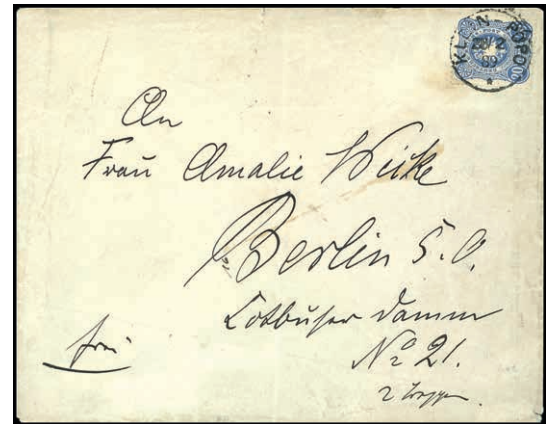 KLEIN-POPO
An
Frau Amalie
Berlin S.O.
Cotbuser Damm
No 21.
2 Treppen
frei